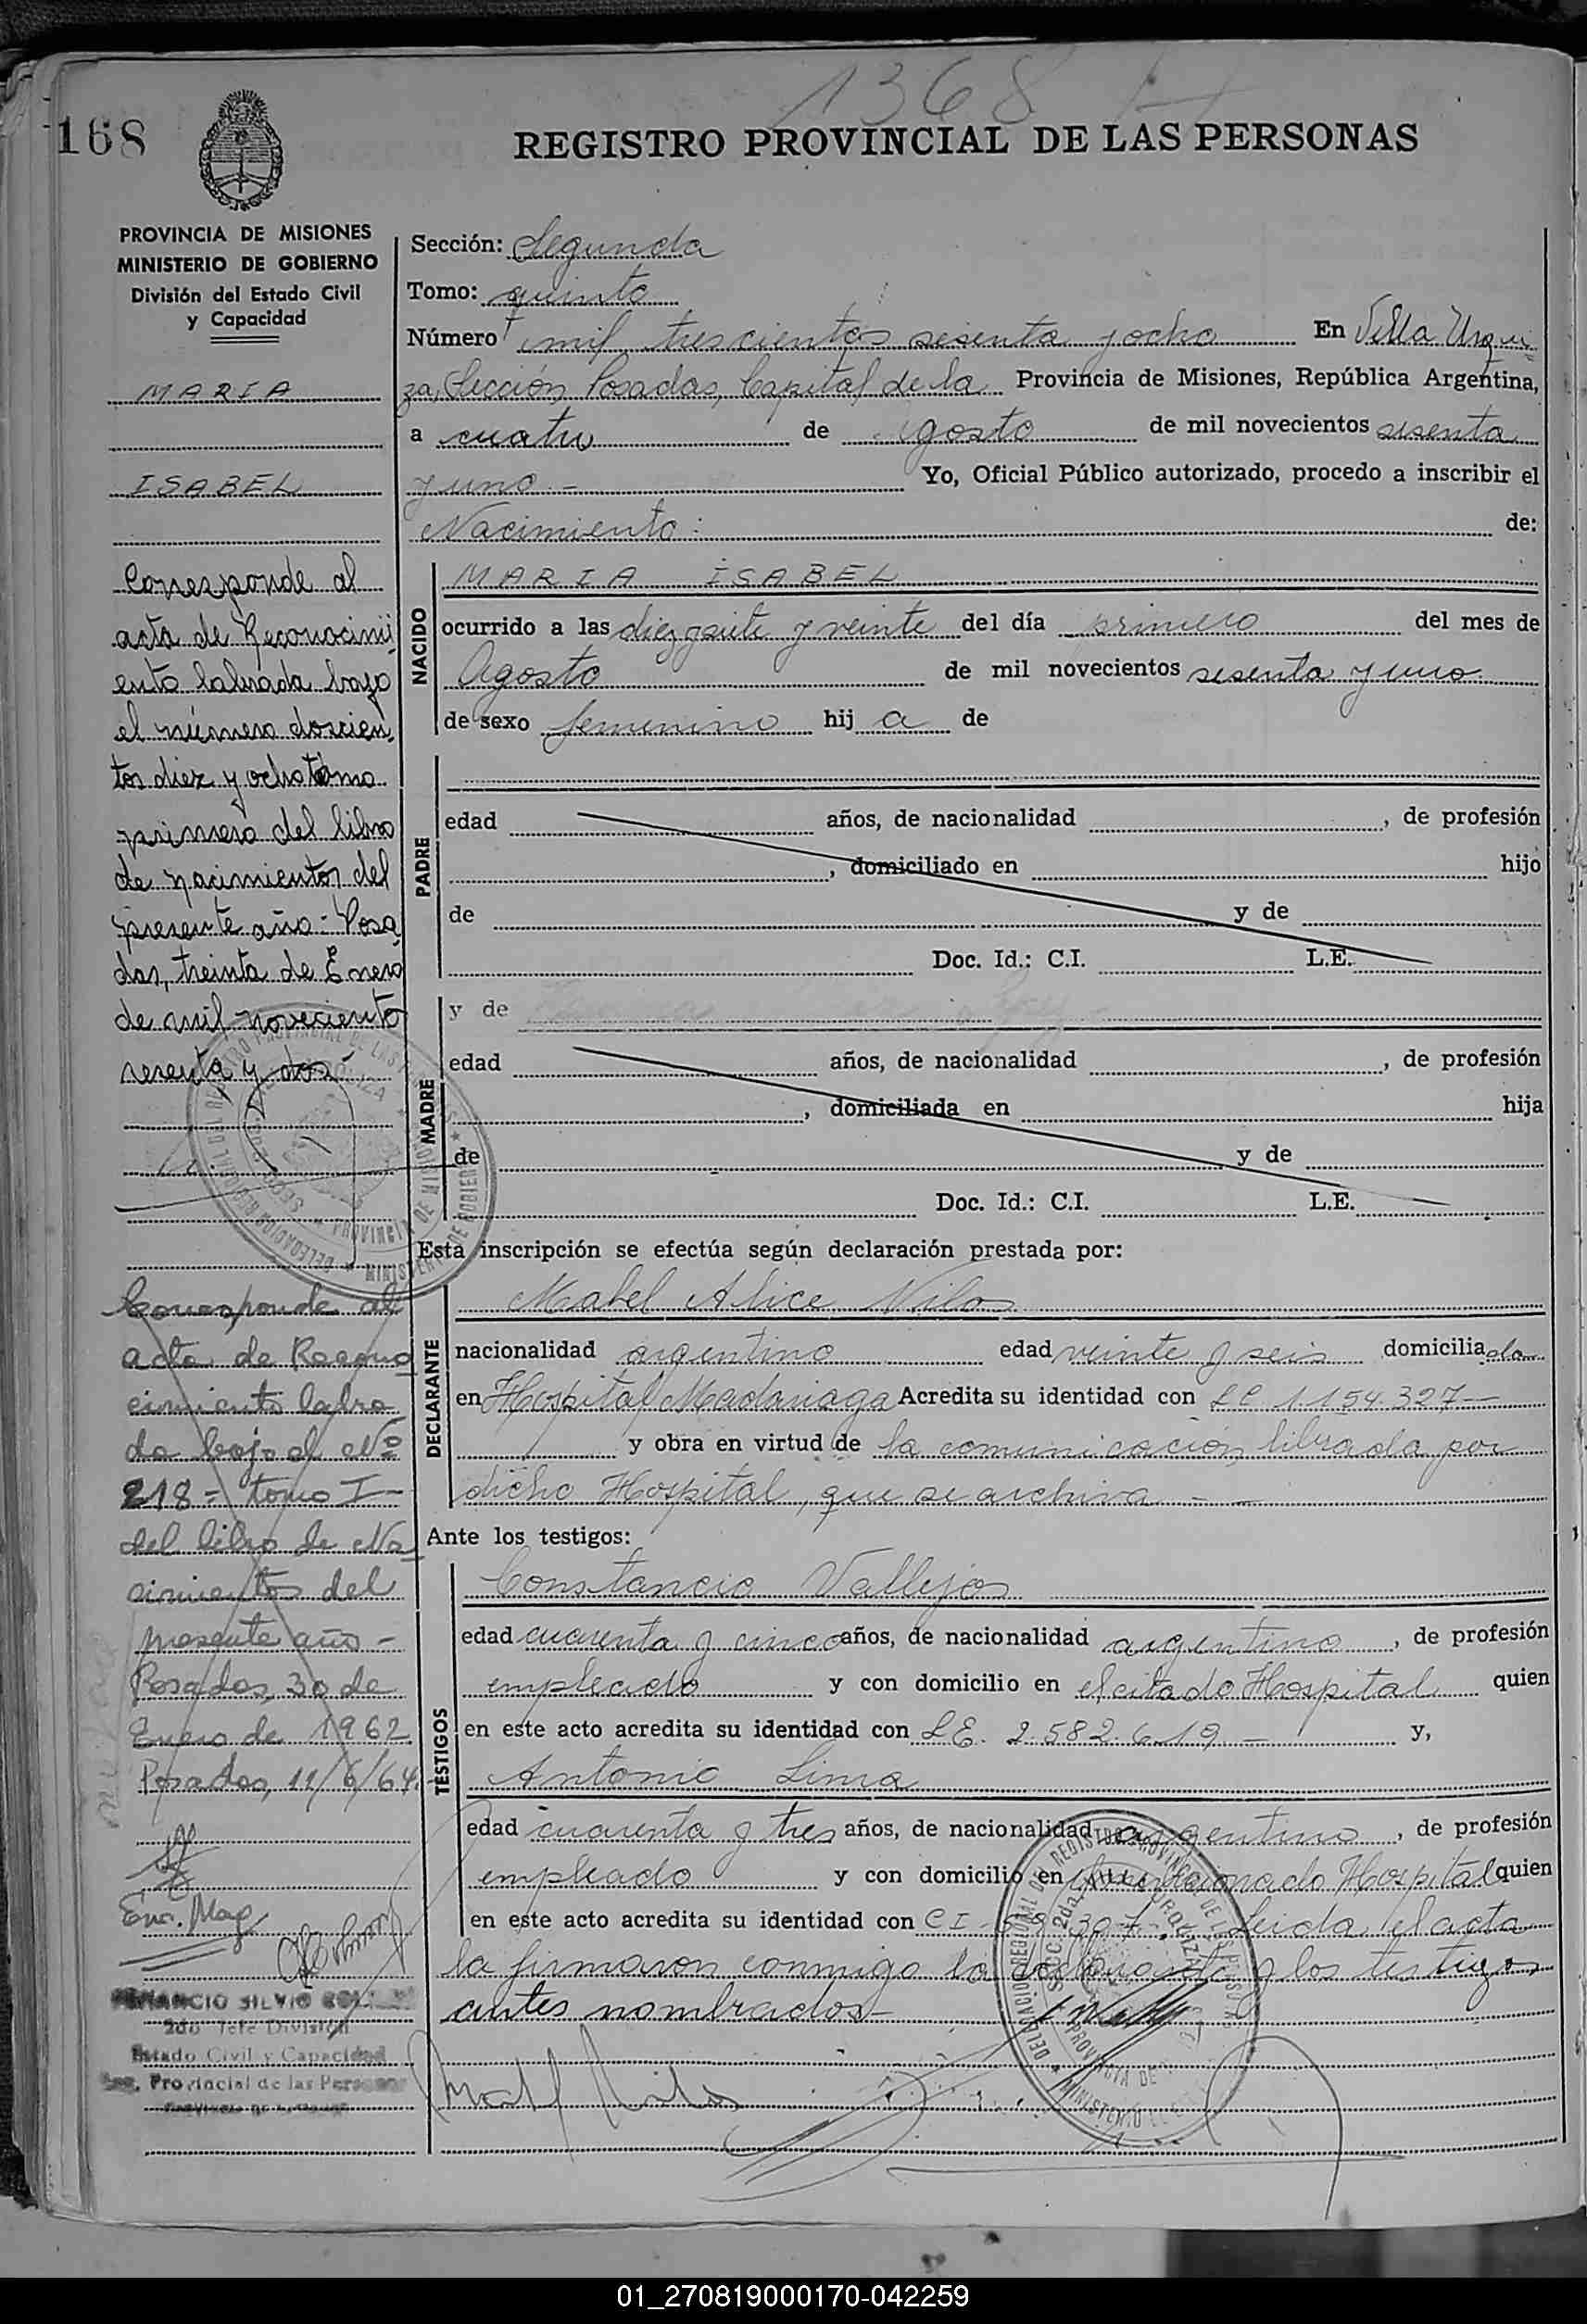 1368
168
REGISTRO PROVINCIAL DE LAS PERSONAS
PROVINCIA DE MISIONES
MINISTERIO DE GOBIERNO
División del Estado Civil
y Capacidad
MARIA
ISABEL
Corresponde al
acta de Reconocimi
ento labrada bajo
el número doscien
tos diez y ocho tomo
primero del libro
de nacimientos del
presente año.- Posa
das, treinta de Enero
de mil novecientos
sesenta y dos
Corresponde al
acta de Recono
cimiento labra
da bajo el Nº
218 - tomo I -
del libro de Na
cimientos del
presente año -
Posadas, 30 de
Enero de 1962.
Posadas, 11/6/64.
2do Jefe División
Estado Civil y Capacidad
Reg. Provincial de las Personas
Sección: Segunda
Tomo: quinto
Número mil trescientos sesenta y ocho En Villa Urqui
za, Sección Posadas, Capital de la Provincia de Misiones, República Argentina,
a cuatro de agosto de mil novecientos sesenta
y uno.- Yo, Oficial Público autorizado, procedo a inscribir el
Nacimiento: de:
NACIDO
MARIA ISABEL
ocurrido a las diez y siete y veinte del día primero del mes de
Agosto de mil novecientos sesenta y uno
de sexo femenino hij a de
PADRE
edad años, de nacionalidad , de profesión
, domiciliado en hijo
de y de
Doc. Id.: C.I. L.E.
MADRE
y de
edad años, de nacionalidad , de profesión
, domiciliada en hija
de y de
Doc. Id.: C.I. L.E.
Esta inscripción se efectúa según declaración prestada por:
DECLARANTE
Mabel Alice Nilos
nacionalidad argentina edad veinte y seis domiciliada
en Hospital Madariaga Acredita su identidad con LC 1.154.327 -
y obra en virtud de la comunicación librada por
dicho Hospital, que se archiva -
Ante los testigos:
TESTIGOS
Constancio Vallejos
edad cuarenta y cinco años, de nacionalidad argentino , de profesión
empleado y con domicilio en el citado Hospital quien
en este acto acredita su identidad con LE. 2.582.619 - y,
Antonio Lima
edad cuarenta y tres años, de nacionalidad argentino , de profesión
empleado y con domicilio en Hospital quien
en este acto acredita su identidad con CI Leida el acta
la firmaron conmigo la declarante y los testigos
antes nombrados -
01_270819000170-042259